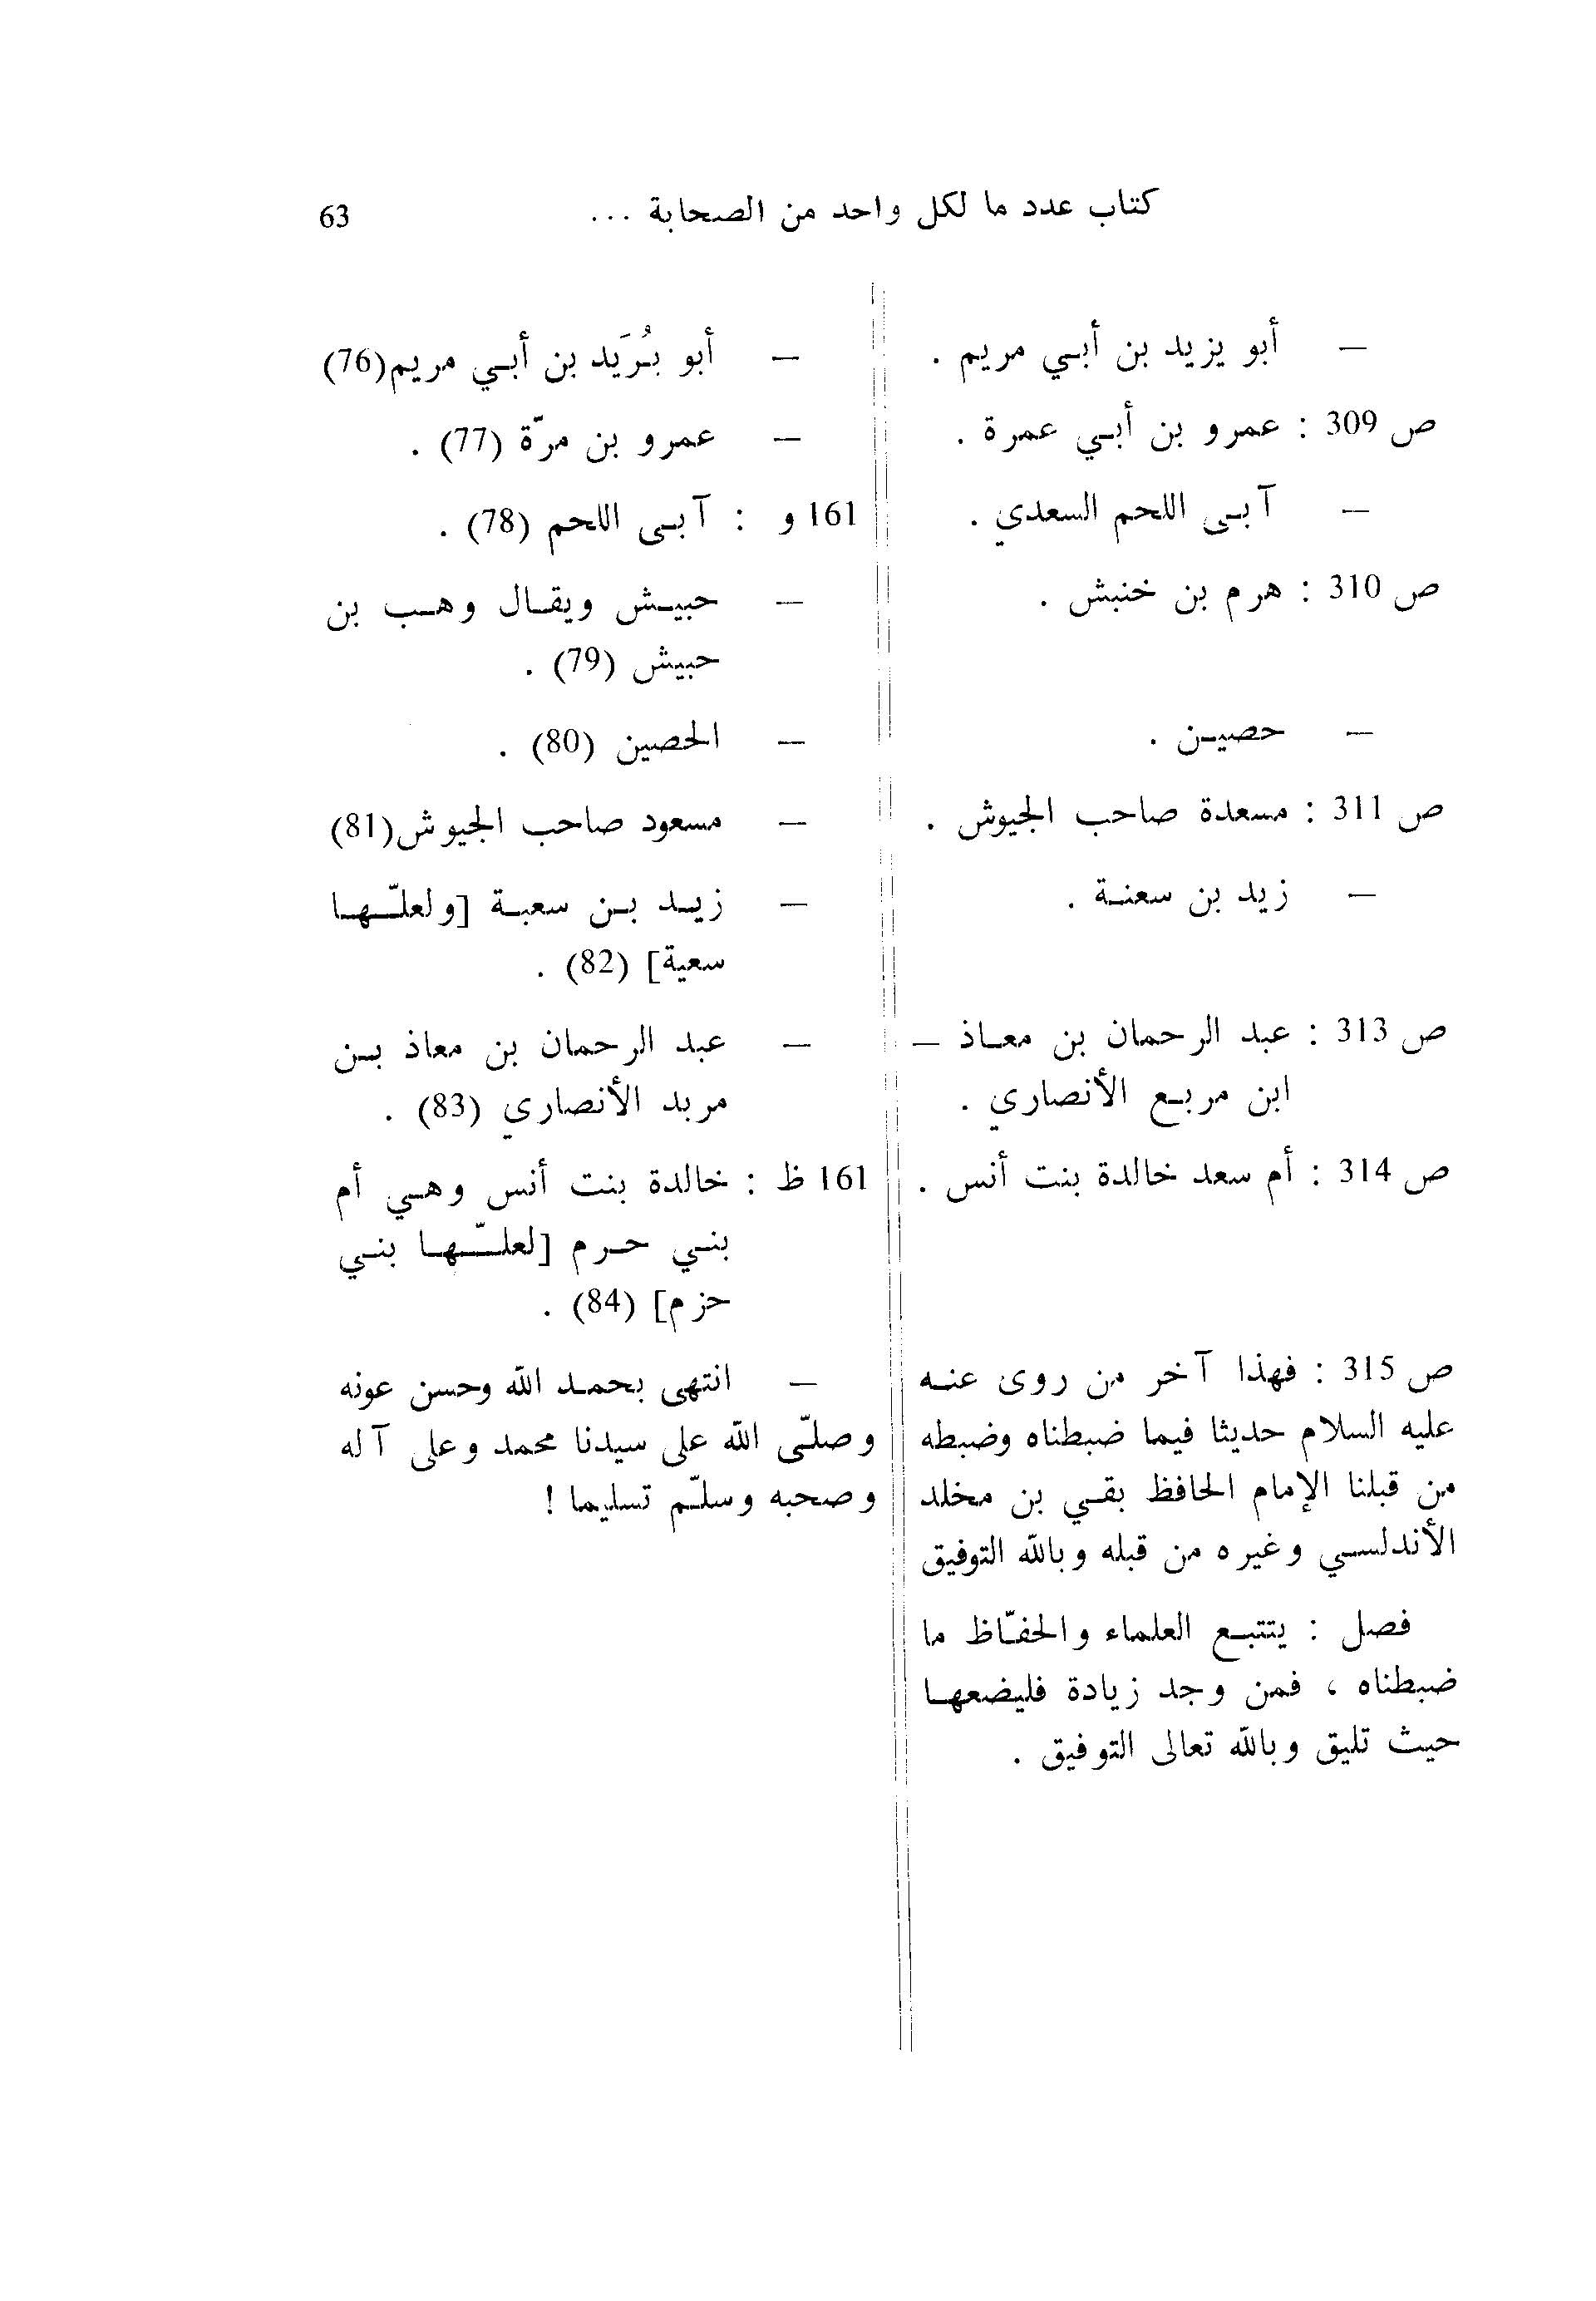 كتاب عدد ما لكل واحد من الصحابة ...
63
— أبو يزيد بن أبي مريم .
ص 309 : عمرو بن أبي عمرة .
— آبى اللحم السعدي .
ص 310 : هرم بن خنبش .
— حصين .
ص 311 : مسعدة صاحب الجيوش .
— زيد بن سعنة .
ص 313 : عبد الرحمان بن معاذ —
ابن مربع الأنصاري .
ص 314 : أم سعد خالدة بنت أنس .
ص 315 : فهذا آخر من روى عنه
عليه السلام حديثا فيما ضبطناه وضبطه
من قبلنا الإمام الحافظ بقي بن مخلد
الأندلسي وغيره من قبله وبالله التوفيق
فصل : يتتبع العلماء والحفّاظ ما
ضبطناه ، فمن وجد زيادة فليضعها
حيث تليق وبالله تعالى التوفيق .
— أبو بُرَيد بن أبي مريم(76)
— عمرو بن مرّة (77) .
161 و : آبى اللحم (78) .
— حبيش ويقال وهب بن
حبيش (79) .
— الحصين (80) .
— مسعود صاحب الجيوش(81)
— زيد بن سعبة [ولعلّها
سعية] (82) .
— عبد الرحمان بن معاذ بن
مربد الأنصاري (83) .
161 ظ : خالدة بنت أنس وهي أم
بني حرم [لعلّها بني
حزم] (84) .
— انتهى بحمد الله وحسن عونه
وصلّى الله على سيدنا محمد وعلى آله
وصحبه وسلّم تسليما !